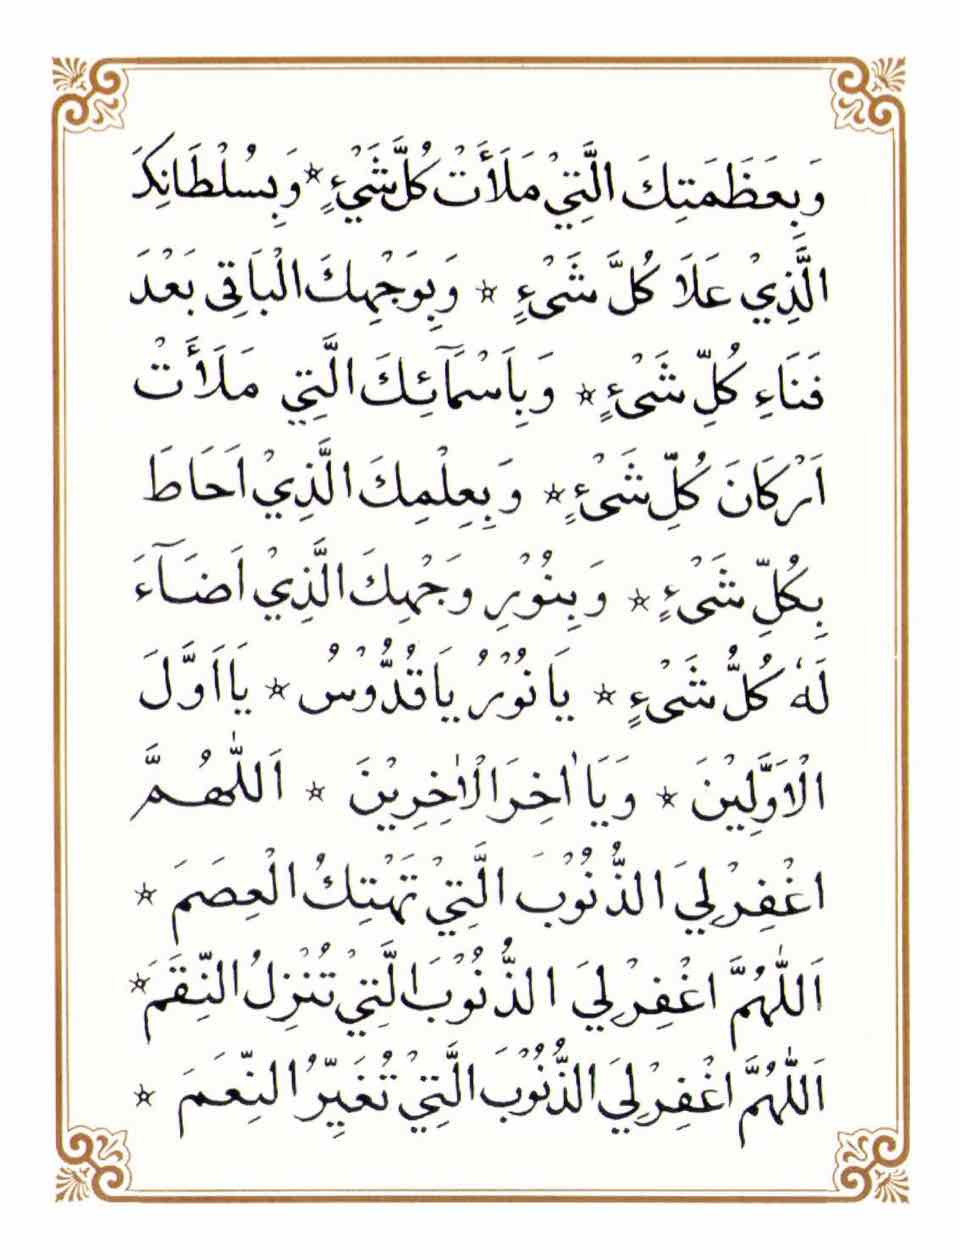 وَبِعَظَمَتِكَ الَّتِيْ مَلَأَتْ كُلَّ شَيْءٍ ☆ وَبِسُلْطَانِكَ
الَّذِيْ عَلَا كُلَّ شَيْءٍ ☆ وَبِوَجْهِكَ الْبَاقِي بَعْدَ
فَنَاءِ كُلِّ شَيْءٍ ☆ وَبِاَسْمَآئِكَ الَّتِي مَلَأَتْ
اَرْكَانَ كُلِّ شَيْءٍ ☆ وَبِعِلْمِكَ الَّذِيْ اَحَاطَ
بِكُلِّ شَيْءٍ ☆ وَبِنُوْرِ وَجْهِكَ الَّذِيْ اَضَآءَ
لَهٗ كُلُّ شَيْءٍ ☆ يَا نُوْرُ يَا قُدُّوْسُ ☆ يَا اَوَّلَ
الْاَوَّلِيْنَ ☆ وَيَا اٰخِرَ الْاٰخِرِيْنَ ☆ اَللّٰهُمَّ
اغْفِرْ لِيَ الذُّنُوْبَ الَّتِيْ تَهْتِكُ الْعِصَمَ ☆
اَللّٰهُمَّ اغْفِرْ لِيَ الذُّنُوْبَ الَّتِيْ تُنْزِلُ النِّقَمَ ☆
اَللّٰهُمَّ اغْفِرْ لِيَ الذُّنُوْبَ الَّتِيْ تُغَيِّرُ النِّعَمَ ☆